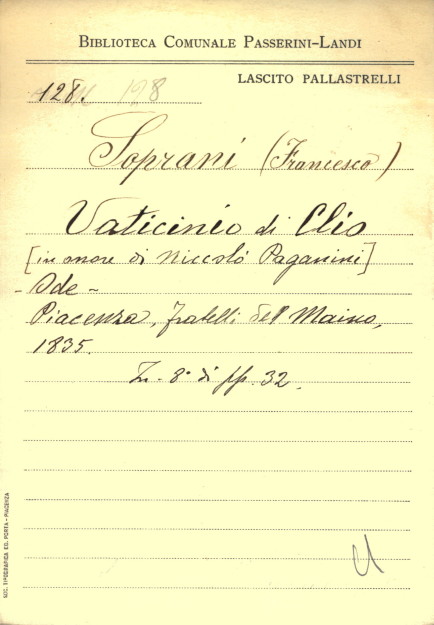 BIBLIOTECA COMUNALE PASSERINI-LANDI
LASCITO PALLASTRELLI
128. 128
Soprani (Francesco)
Vaticinio di Clio
[in onore di Niccolò Paganini]
- Ode -
Piacenza, fratelli del Maino,
1835.
In-8° di pp. 32.
SOC. TIPOGRAFICA ED. PORTA - PIACENZA